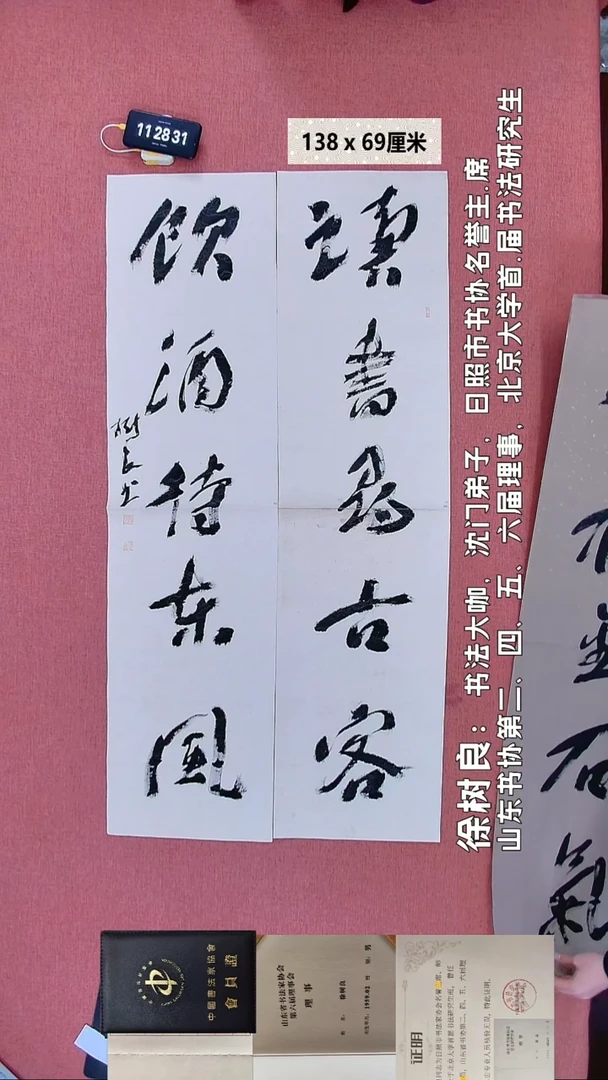 11 28 31
138 x 69厘米
讀書古客
飲酒待東風
樹良书
徐树良：书法大咖、沈门弟子、日照市书协名誉主.席
山东书协第二、四、五、六届理事、北京大学首.届书法研究生
中國書法家協會
會員證
山东省书法家协会
第六届理事会
理事
徐树良 性别：男
证明